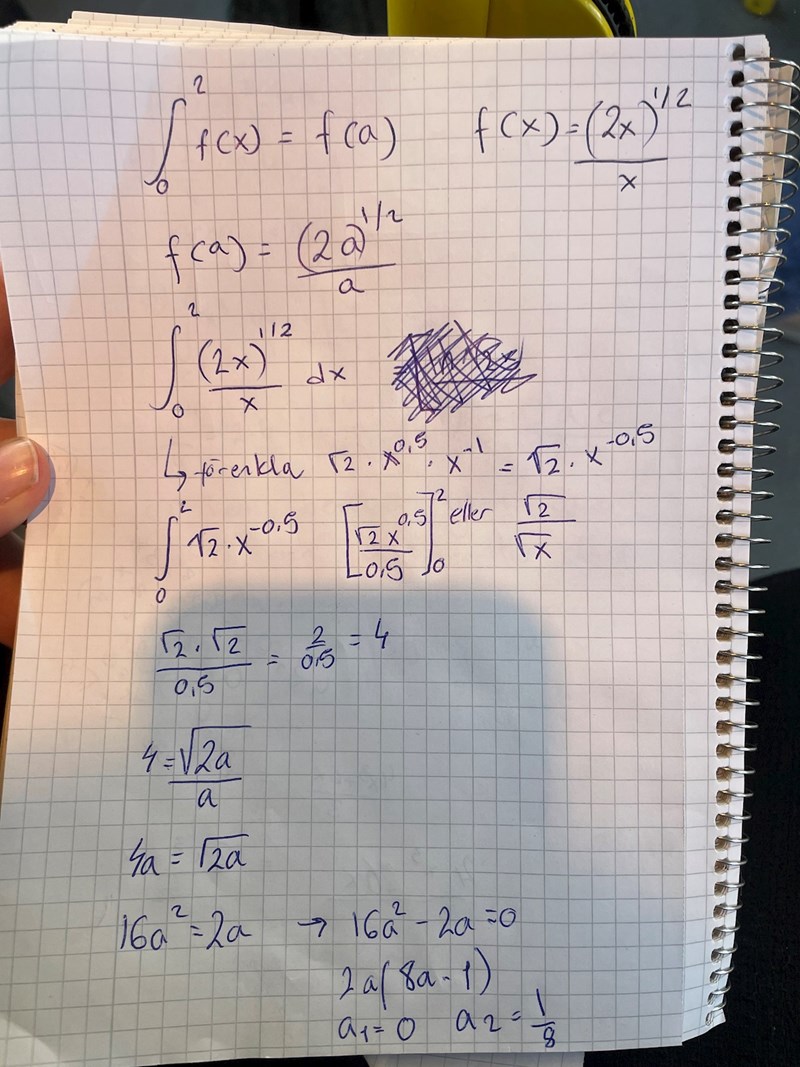 ∫₀² f(x) = f(a)    f(x) = (2x)^1/2 / x
f(a) = (2a)^1/2 / a
∫₀² (2x)^1/2 / x dx
↳ förenkla √2 · x^0,5 · x^-1 = √2 · x^-0,5
∫₀² √2 · x^-0,5    [√2 x^0,5 / 0,5]₀² eller √2 / √x
√2 · √2 / 0,5 = 2 / 0,5 = 4
4 = √2a / a
4a = √2a
16a² = 2a → 16a² - 2a = 0
2a(8a - 1)
a₁ = 0    a₂ = 1/8